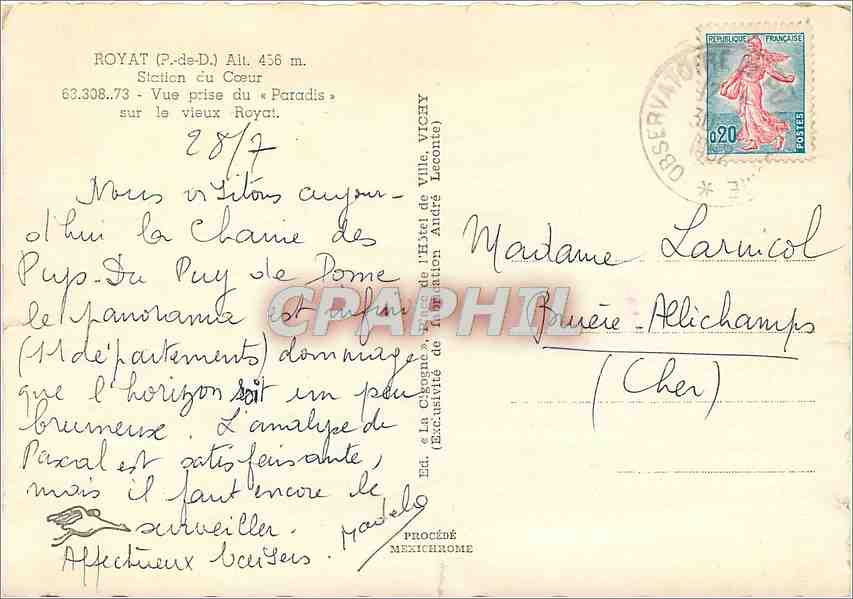 ROYAT (P.-de-D.) Alt. 456 m.
Station du Cœur
63.308..73 - Vue prise du « Paradis »
sur le vieux Royat.
28/7
Nous visitons aujour-
d'hui la Chaine des
Puys - Du Puy de Dome
le panorama est infini
(11 départements) dommage
que l'horizon soit un peu
brumeux. L'analyse de
Pascal est satisfaisante,
mais il faut encore le
surveiller.
Affectueux baisers
Ed. « La Cigogne », Place de l'Hôtel de Ville, VICHY
(Exclusivité de fabrication André Leconte)
PROCÉDÉ
MEXICHROME
REPUBLIQUE FRANÇAISE
0,20
POSTES
OBSERVATOIRE
Madame Larnicol
Bruère-Allichamps
(Cher)
CPAPHIL